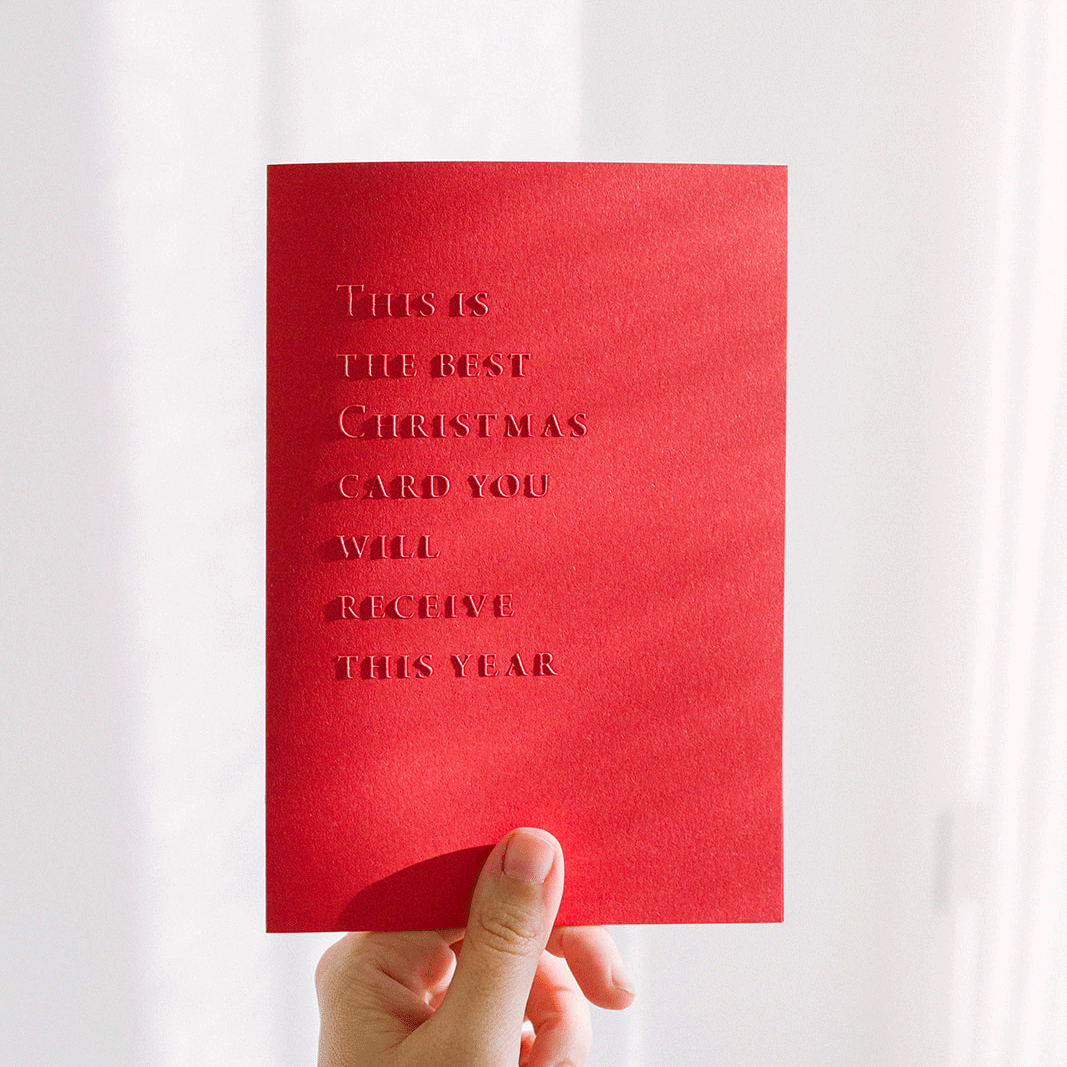 This is
the best
Christmas
card you
will
receive
this year